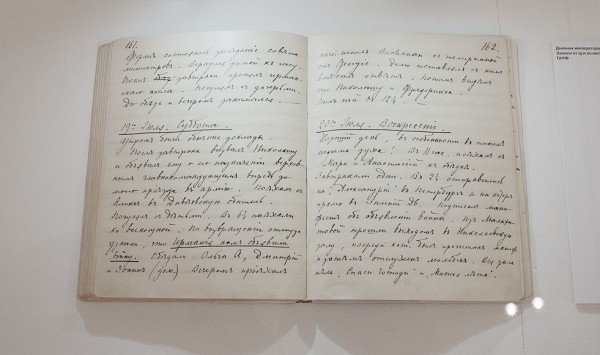 161.
Утромъ состоялось засѣданіе совѣта
министровъ. Вернулся домой къ часу.
Послѣ завтрака принялъ герман-
скаго посла. Погулялъ съ дочерьми.
До обѣда и вечеромъ занимался.
19го Іюля. Суббота.
Утромъ были обычные доклады.
Послѣ завтрака вызвалъ Николашу
и объявилъ ему о его назначеніи верхов-
нымъ главнокомандующимъ впредь до
моего пріѣзда въ армію. Поѣхалъ съ
Аликсъ въ Дивѣевскую обитель.
Погулялъ съ дѣтьми. Въ 6½ поѣхали
ко всенощной. По возвращеніи оттуда
узнали, что Германія намъ объявила
войну. Обѣдали: Ольга А., Дмитрій
и Іоаннъ (деж.). Вечеромъ пріѣхалъ
162.
посолъ Buchanan съ телеграммой
отъ Georgie. Долго составлялъ съ нимъ
вмѣстѣ отвѣтъ. Потомъ видѣлъ
еще Николашу и Фредерикса.
Пилъ чай въ 12¼.
20го Іюля. Воскресеніе.
Хорошій день, въ особенности въ смыслѣ
подъема духа! Въ 11 час. поѣхалъ съ
Мари и Анастасіей къ обѣднѣ.
Завтракали одни. Въ 2¼ отправились
на „Александріи" въ Петербургъ и на катерѣ
прямо въ Зимній Дв. Подписалъ мани-
фестъ объ объявленіи войны. Изъ Малахи-
товой прошли выходомъ въ Николаевскую
залу, посреди кот. былъ прочитанъ маниф.
и затѣмъ отслуженъ молебенъ. Вся зала
пѣла „Спаси Господи" и „Многая лѣта".
Дневник императора
ГАРФ